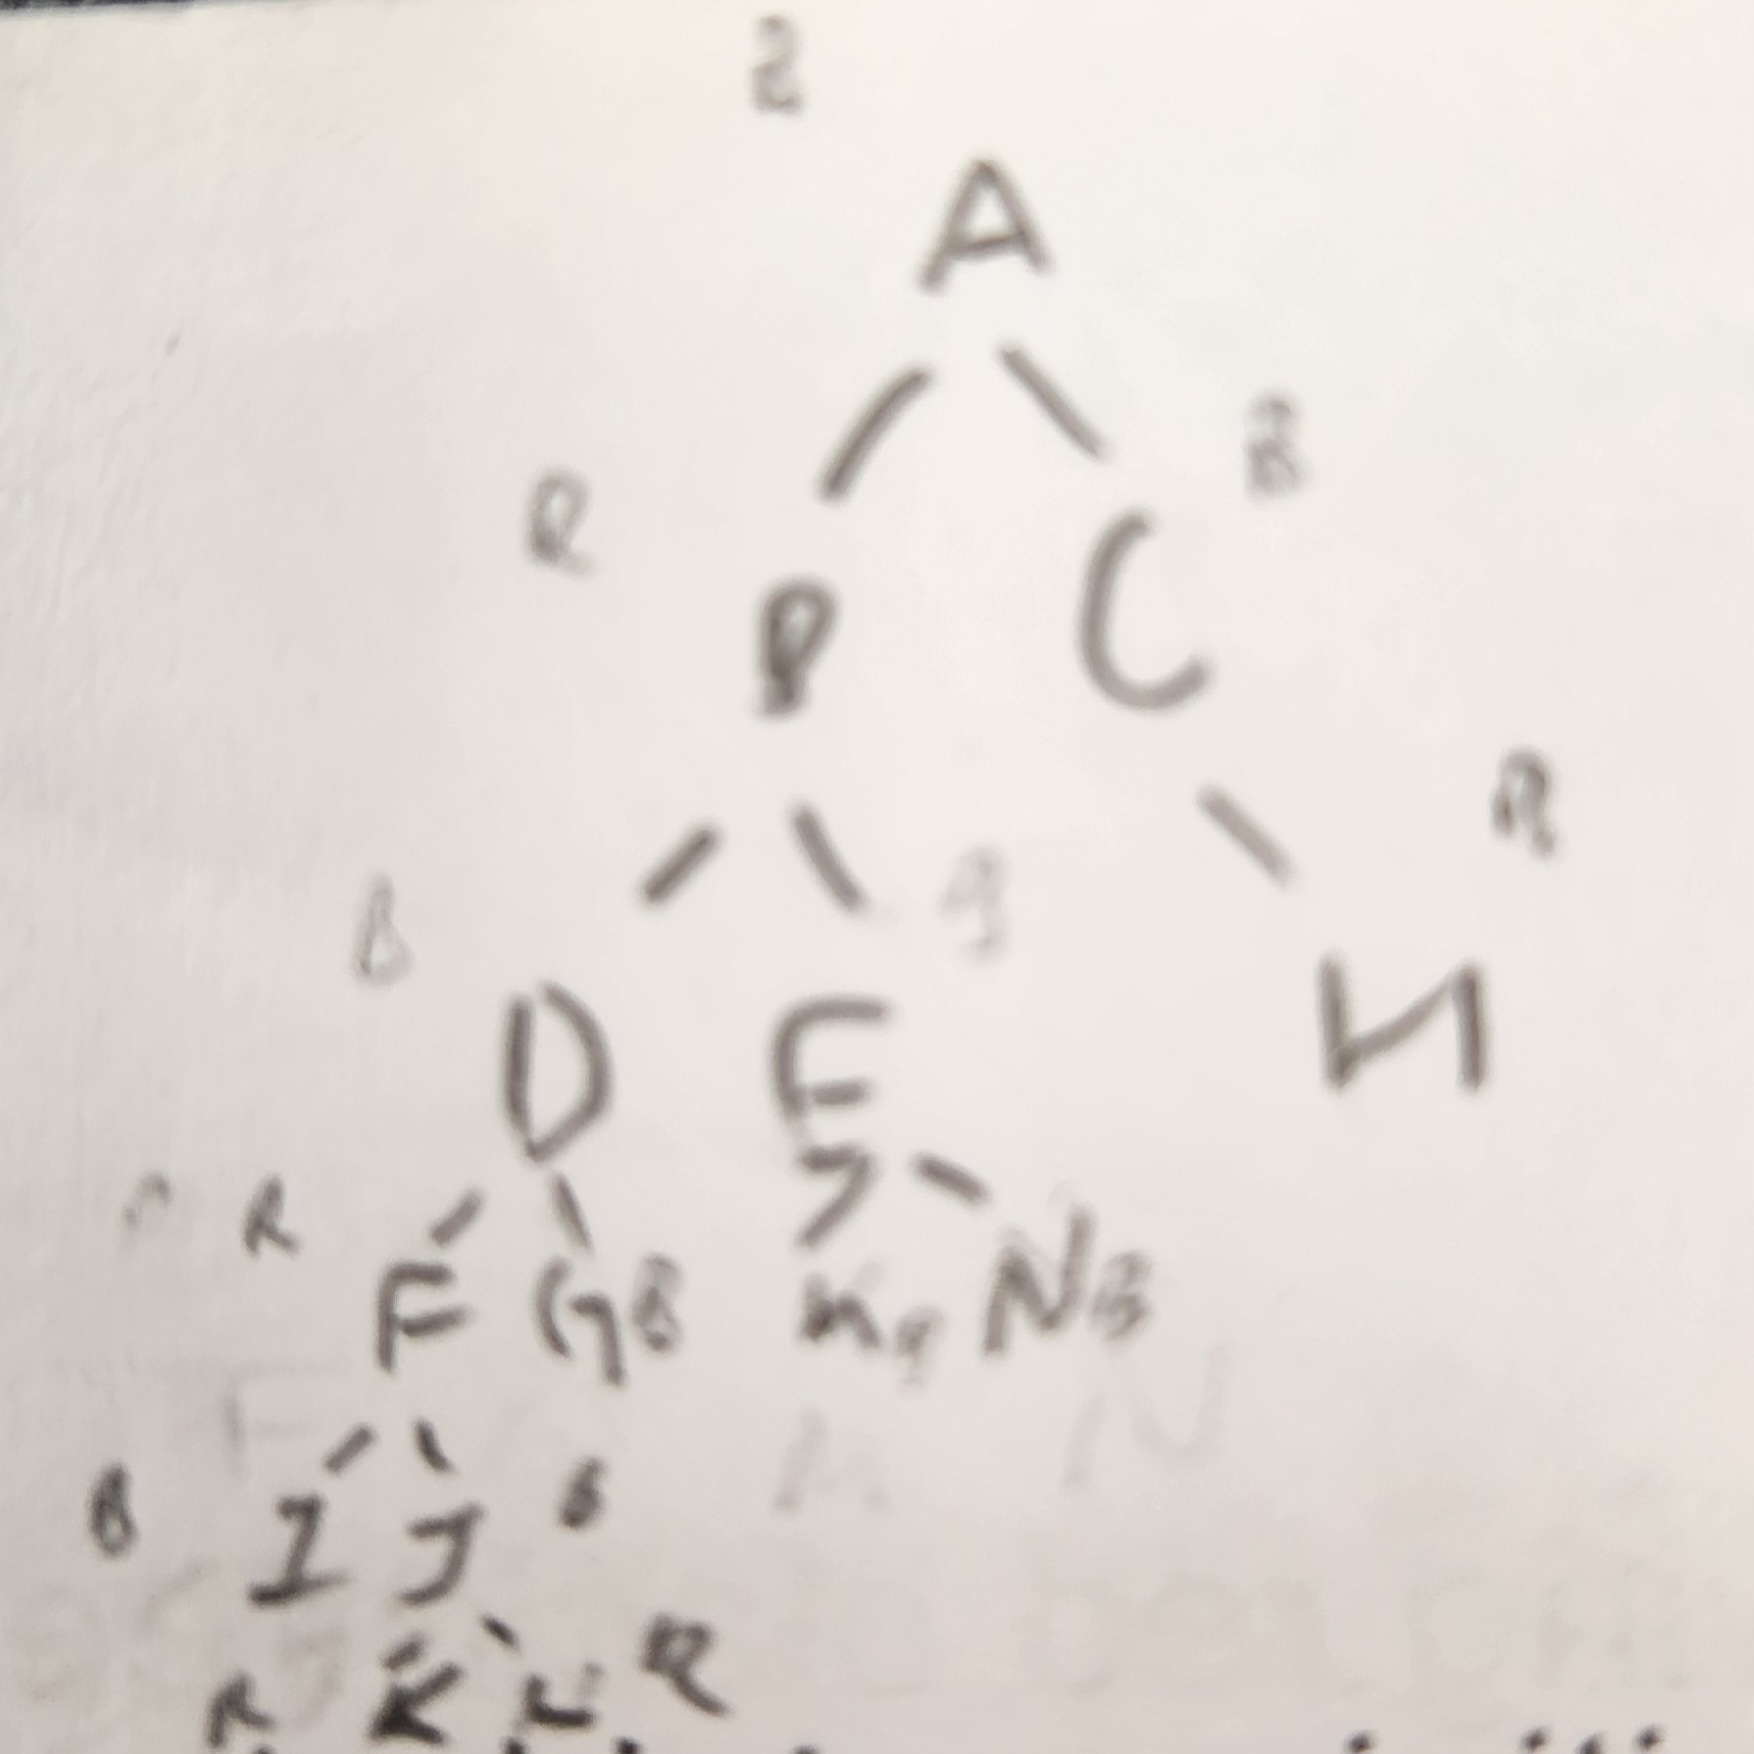 B
A
R B
B C
R
B B
D E H
R F G B K N B
B I J B
R K L R